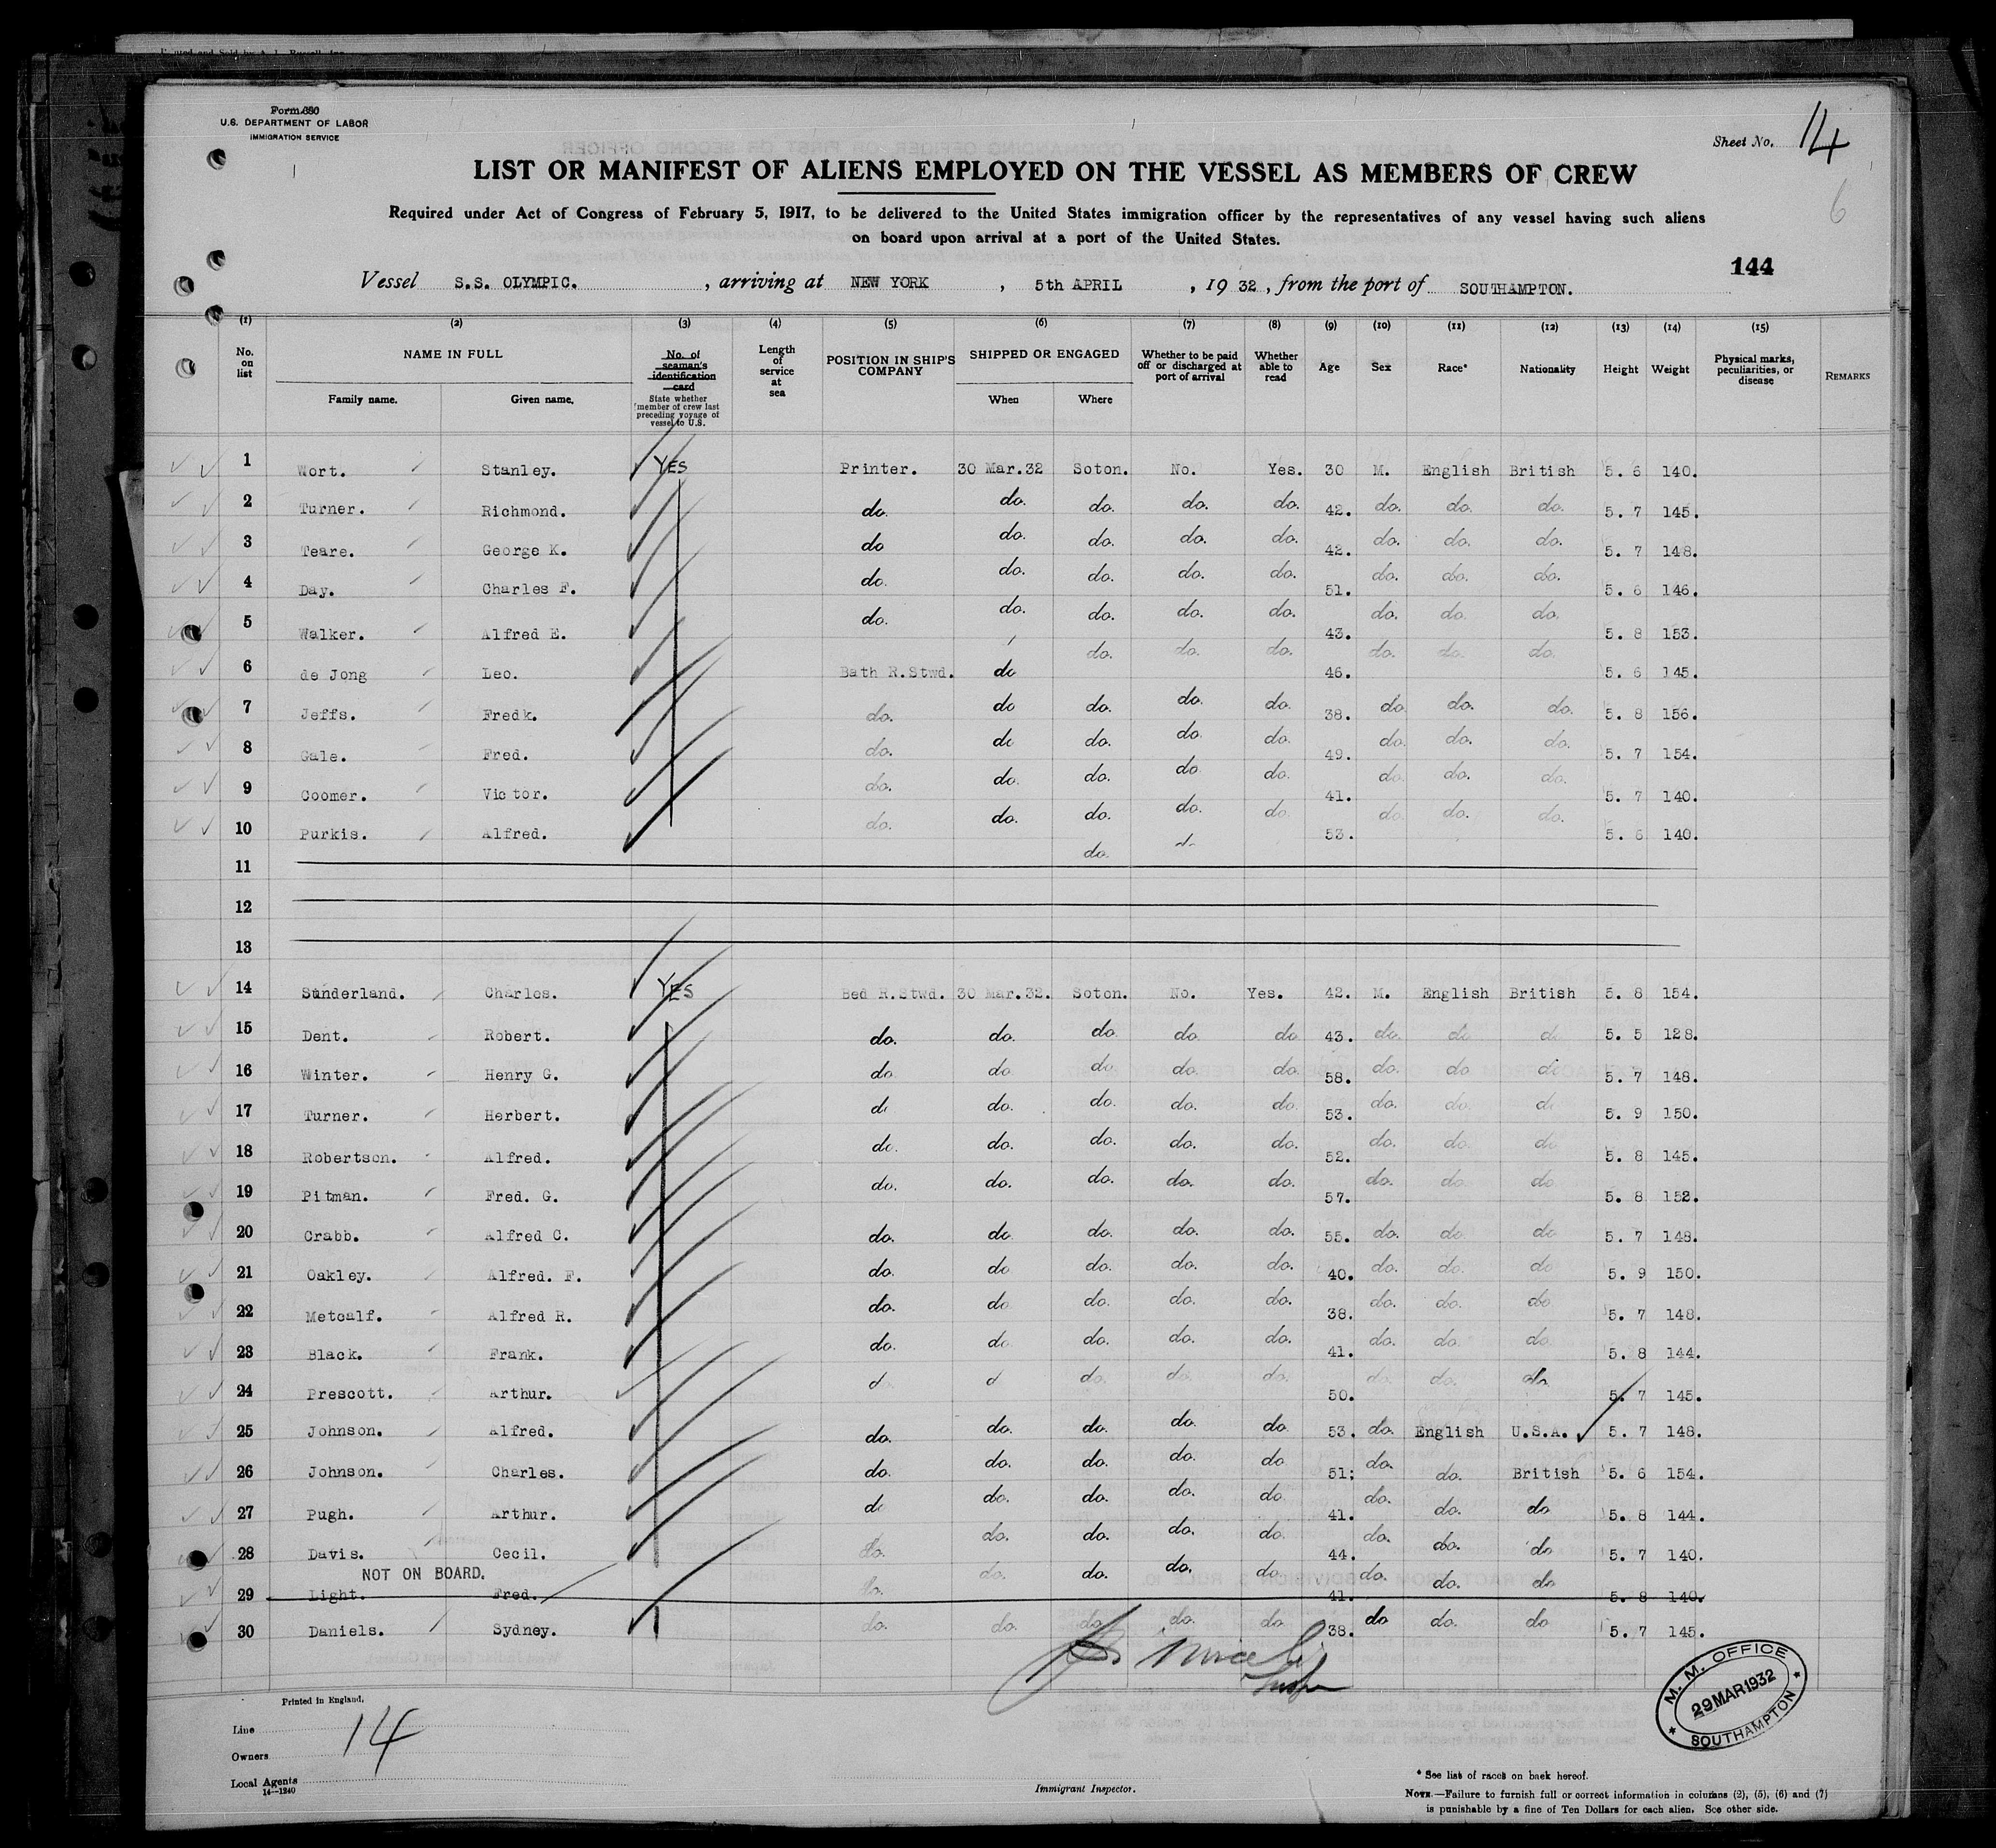 Form 680
U.S. DEPARTMENT OF LABOR
IMMIGRATION SERVICE
Sheet No. 14
6
LIST OR MANIFEST OF ALIENS EMPLOYED ON THE VESSEL AS MEMBERS OF CREW
Required under Act of Congress of February 5, 1917, to be delivered to the United States immigration officer by the representatives of any vessel having such aliens
on board upon arrival at a port of the United States.
144
Vessel S.S. OLYMPIC. , arriving at NEW YORK , 5th APRIL , 19 32 , from the port of SOUTHAMPTON.
(1) (2) (3) (4) (5) (6) (7) (8) (9) (10) (11) (12) (13) (14) (15)
No. on list NAME IN FULL Family name. Given name. No. of seaman's identification card State whether member of crew last preceding voyage of vessel to U.S. Length of service at sea POSITION IN SHIP'S COMPANY SHIPPED OR ENGAGED When Where Whether to be paid off or discharged at port of arrival Whether able to read Age Sex Race* Nationality Height Weight Physical marks, peculiarities, or disease REMARKS
1 Wort. Stanley. YES Printer. 30 Mar.32 Soton. No. Yes. 30 M. English British 5. 6 140.
2 Turner. Richmond. do. do. do. do. do. 42. do. do. do. 5. 7 145.
3 Teare. George K. do do. do. do. do. 42. do. do. do. 5. 7 148.
4 Day. Charles F. do. do. do. do. do. 51. do. do. do. 5. 6 146.
5 Walker. Alfred E. do. do. do. do. do. 43. do. do. do. 5. 8 153.
6 de Jong Leo. Bath R.Stwd. do do. do. do. 46. do. do. do. 5. 6 145.
7 Jeffs. Fredk. do. do do. do. do. 38. do. do. do. 5. 8 156.
8 Gale. Fred. do. do do. do. do. 49. do. do. do. 5. 7 154.
9 Coomer. Victor. do. do. do. do. do. 41. do. do. do. 5. 7 140.
10 Purkis. Alfred. do. do. do. do. do 53. do. do. do. 5. 6 140.
11 do.
12
13
14 Sunderland. Charles. YES Bed R.Stwd. 30 Mar.32. Soton. No. Yes. 42. M. English British 5. 8 154.
15 Dent. Robert. do. do. do. do do 43. do. do do 5. 5 128.
16 Winter. Henry G. do do. do. do. do. 58. do. do do 5. 7 148.
17 Turner. Herbert. do do. do. do. do 53. do. do do 5. 9 150.
18 Robertson. Alfred. do. do. do. do. do. 52. do. do do 5. 8 145.
19 Pitman. Fred. G. do. do. do. do. do. 57. do. do. do 5. 8 152.
20 Crabb. Alfred C. do. do do. do. do. 55. do. do. do 5. 7 148.
21 Oakley. Alfred. F. do. do do. do. do. 40. do. do. do 5. 9 150.
22 Metcalf. Alfred R. do. do do. do. do. 38. do. do. do 5. 7 148.
23 Black. Frank. do. do do. do. do. 41. do. do. do 5. 8 144.
24 Prescott. Arthur. d d do. do. do. 50. do. do. do. 5. 7 145.
25 Johnson. Alfred. do. do. do. do. do 53. do. English U.S.A. 5. 7 148.
26 Johnson. Charles. do. do. do. do. do 51; do. do. British 5. 6 154.
27 Pugh. Arthur. do do. do. do. do. 41. do. do. do 5. 8 144.
28 Davis. Cecil. do. do. do. do. do. 44. do. do. do 5. 7 140.
NOT ON BOARD.
29 Light. Fred. do. do. do. do. do. 41. do. do. do 5. 8 140.
30 Daniels. Sydney. do. do. do. do. do. 38. do do. do 5. 7 145.
M. M. OFFICE
29 MAR 1932
SOUTHAMPTON
Printed in England.
Line
14
Owners
Local Agents
14—1240
Immigrant Inspector.
* See list of races on back hereof.
NOTE.—Failure to furnish full or correct information in columns (2), (5), (6) and (7)
is punishable by a fine of Ten Dollars for each alien. See other side.